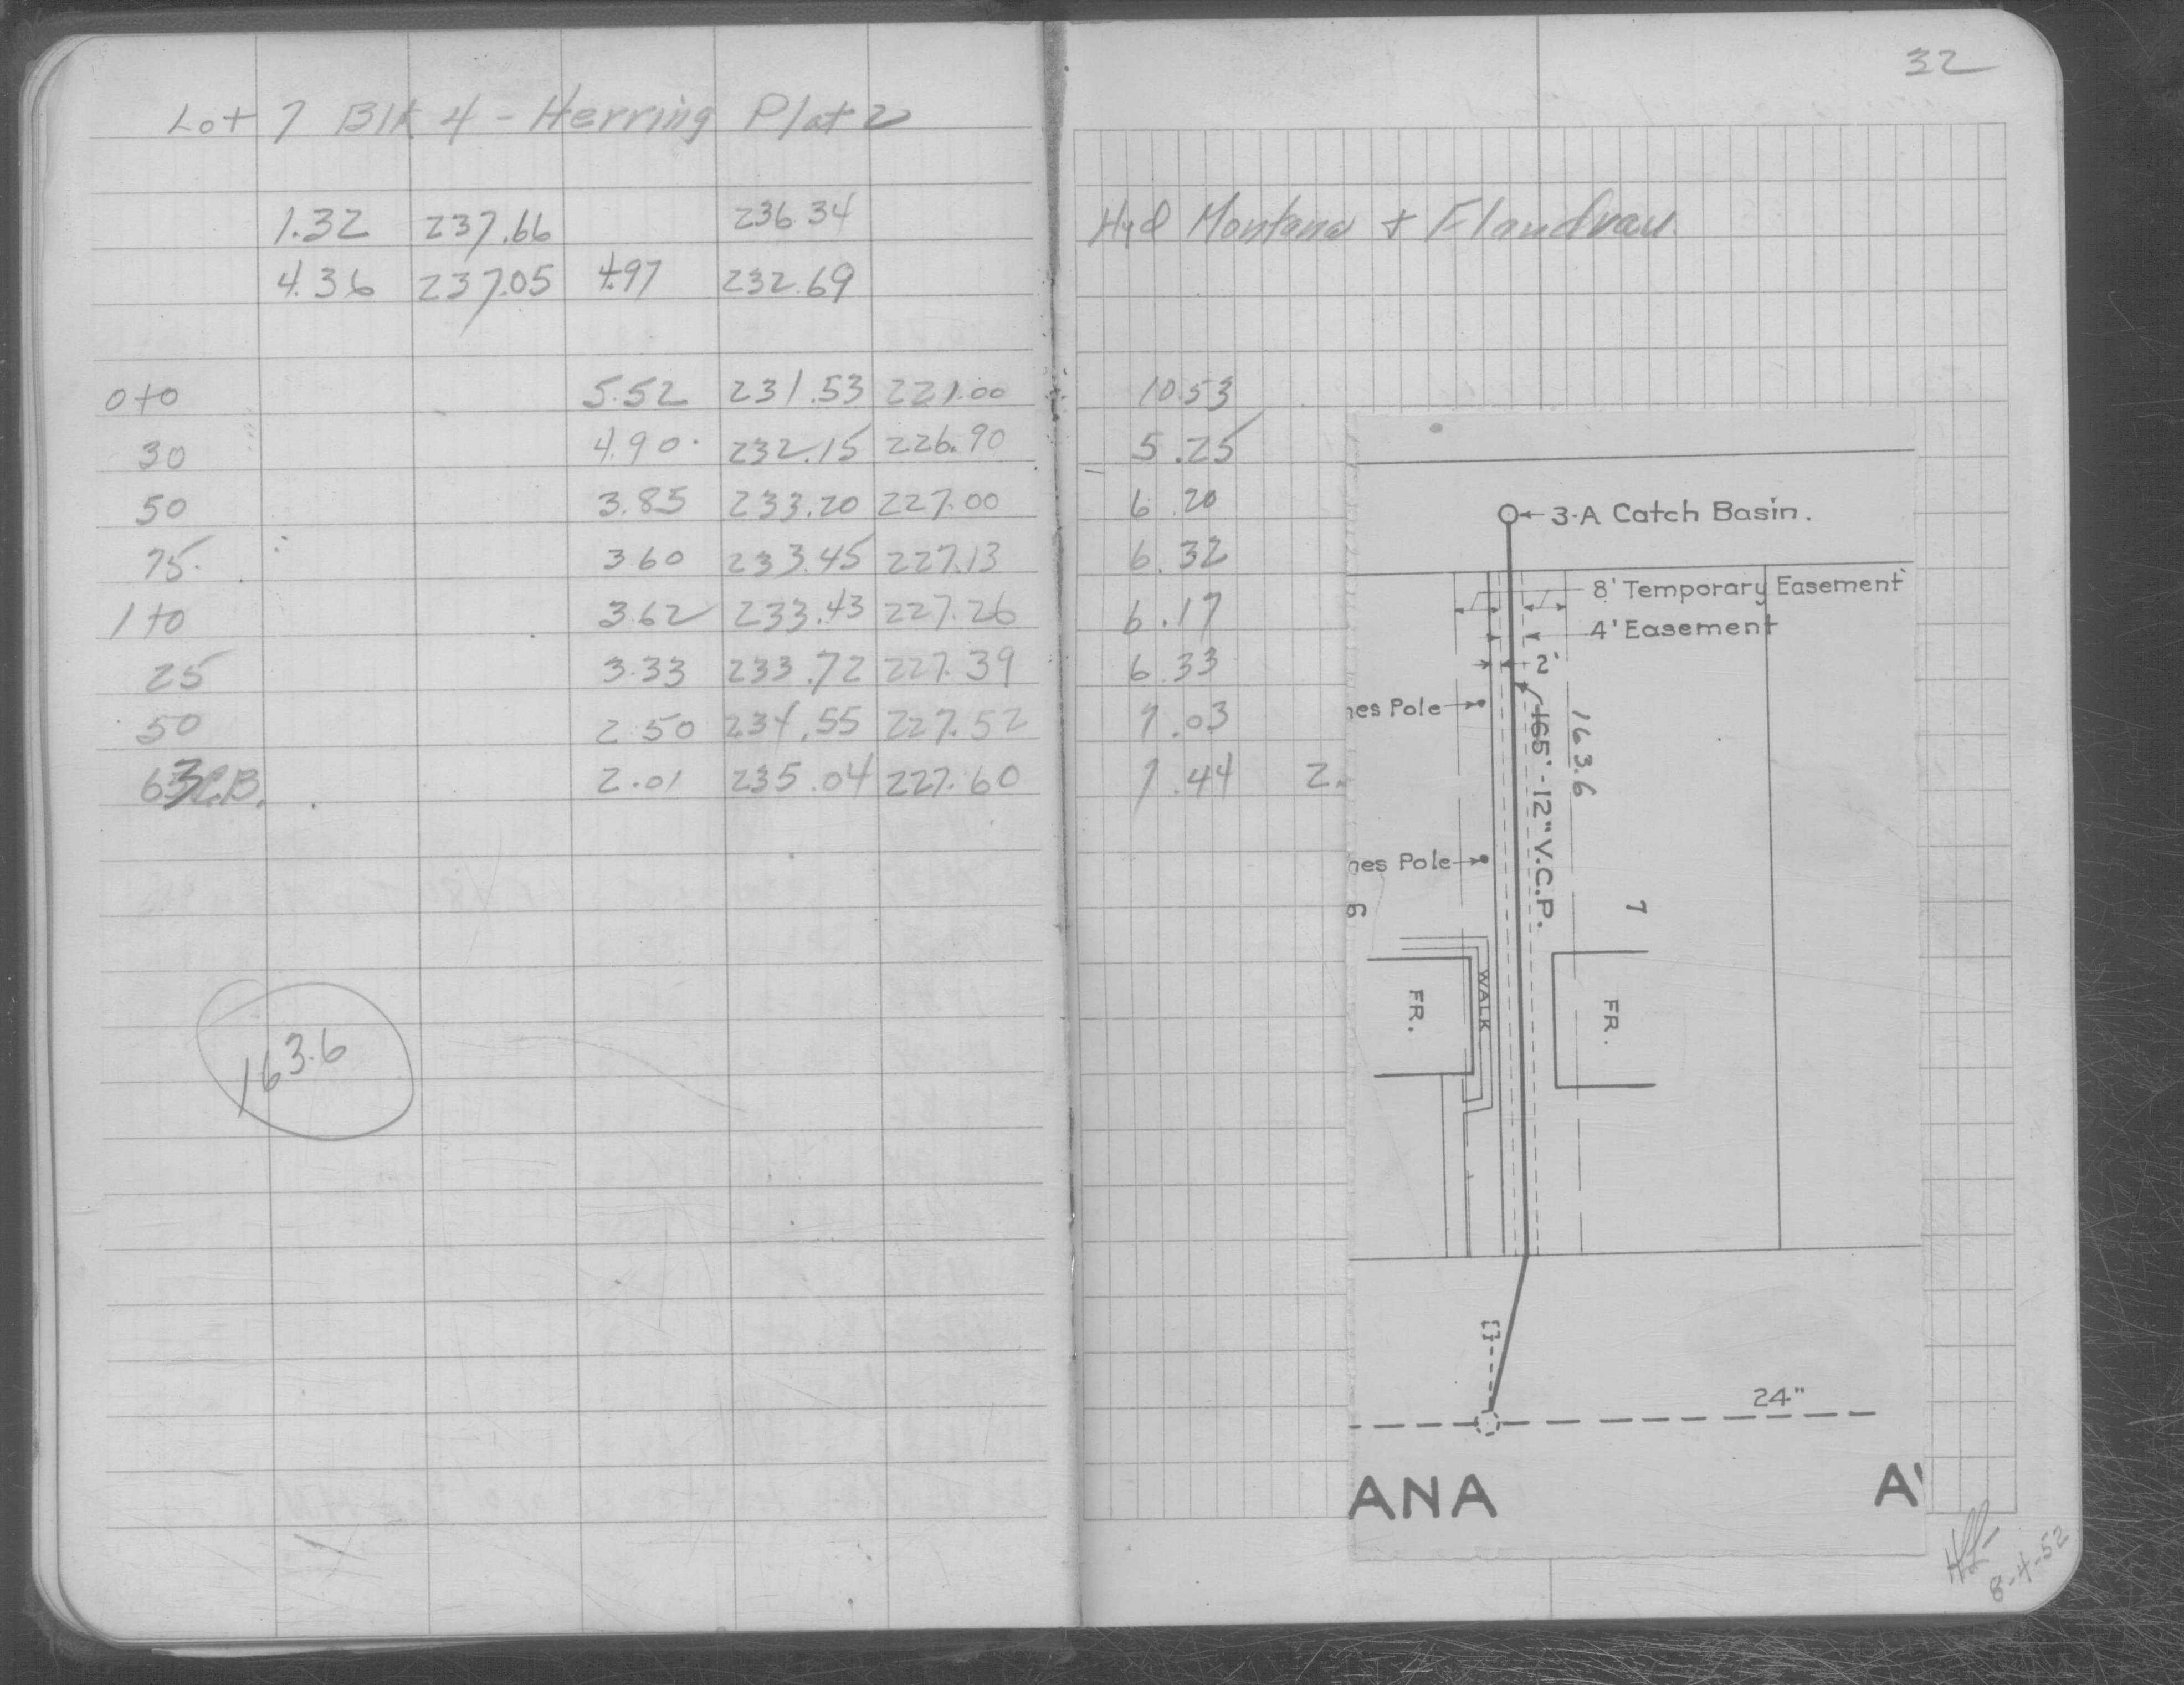 32
Lot 7 Blk 4 - Herring Plat 2
1.32 237.66 236.34 Hyd Montana + Flandrau
4.36 237.05 4.97 232.69
0+0 5.52 231.53 221.00 10.53
30 4.90 232.15 226.90 5.25
50 3.85 233.20 227.00 6.20
75 3.60 233.45 227.13 6.32
1+0 3.62 233.43 227.26 6.17
25 3.33 233.72 227.39 6.33
50 2.50 234.55 227.52 7.03
63 C.B. 2.01 235.04 227.60 7.44 2.
163.6
3-A Catch Basin.
8' Temporary Easement
4' Easement
2'
nes Pole
165'-12" V.C.P.
163.6
nes Pole
6
7
WALK
FR.
FR.
24"
ANA A
8-4-52